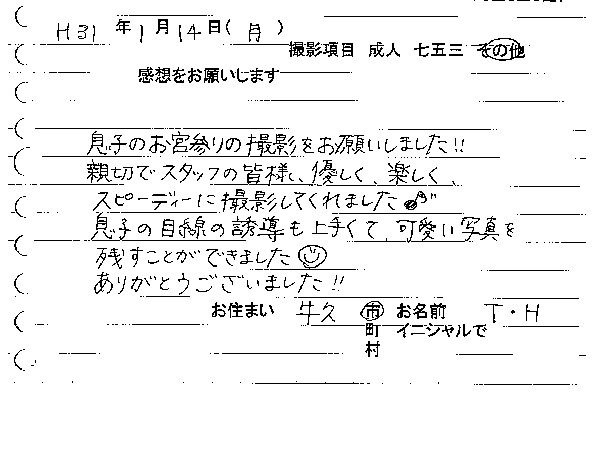 H31年1月14日(月)
撮影項目 成人 七五三 その他
感想をお願いします
息子のお宮参りの撮影をお願いしました!!
親切でスタッフの皆様、優しく、楽しく、
スピーディーに撮影してくれました♪
息子の目線の誘導も上手くて、可愛い写真を
残すことができました☺
ありがとうございました!!
お住まい 牛久 市 お名前 T・H
町 イニシャルで
村